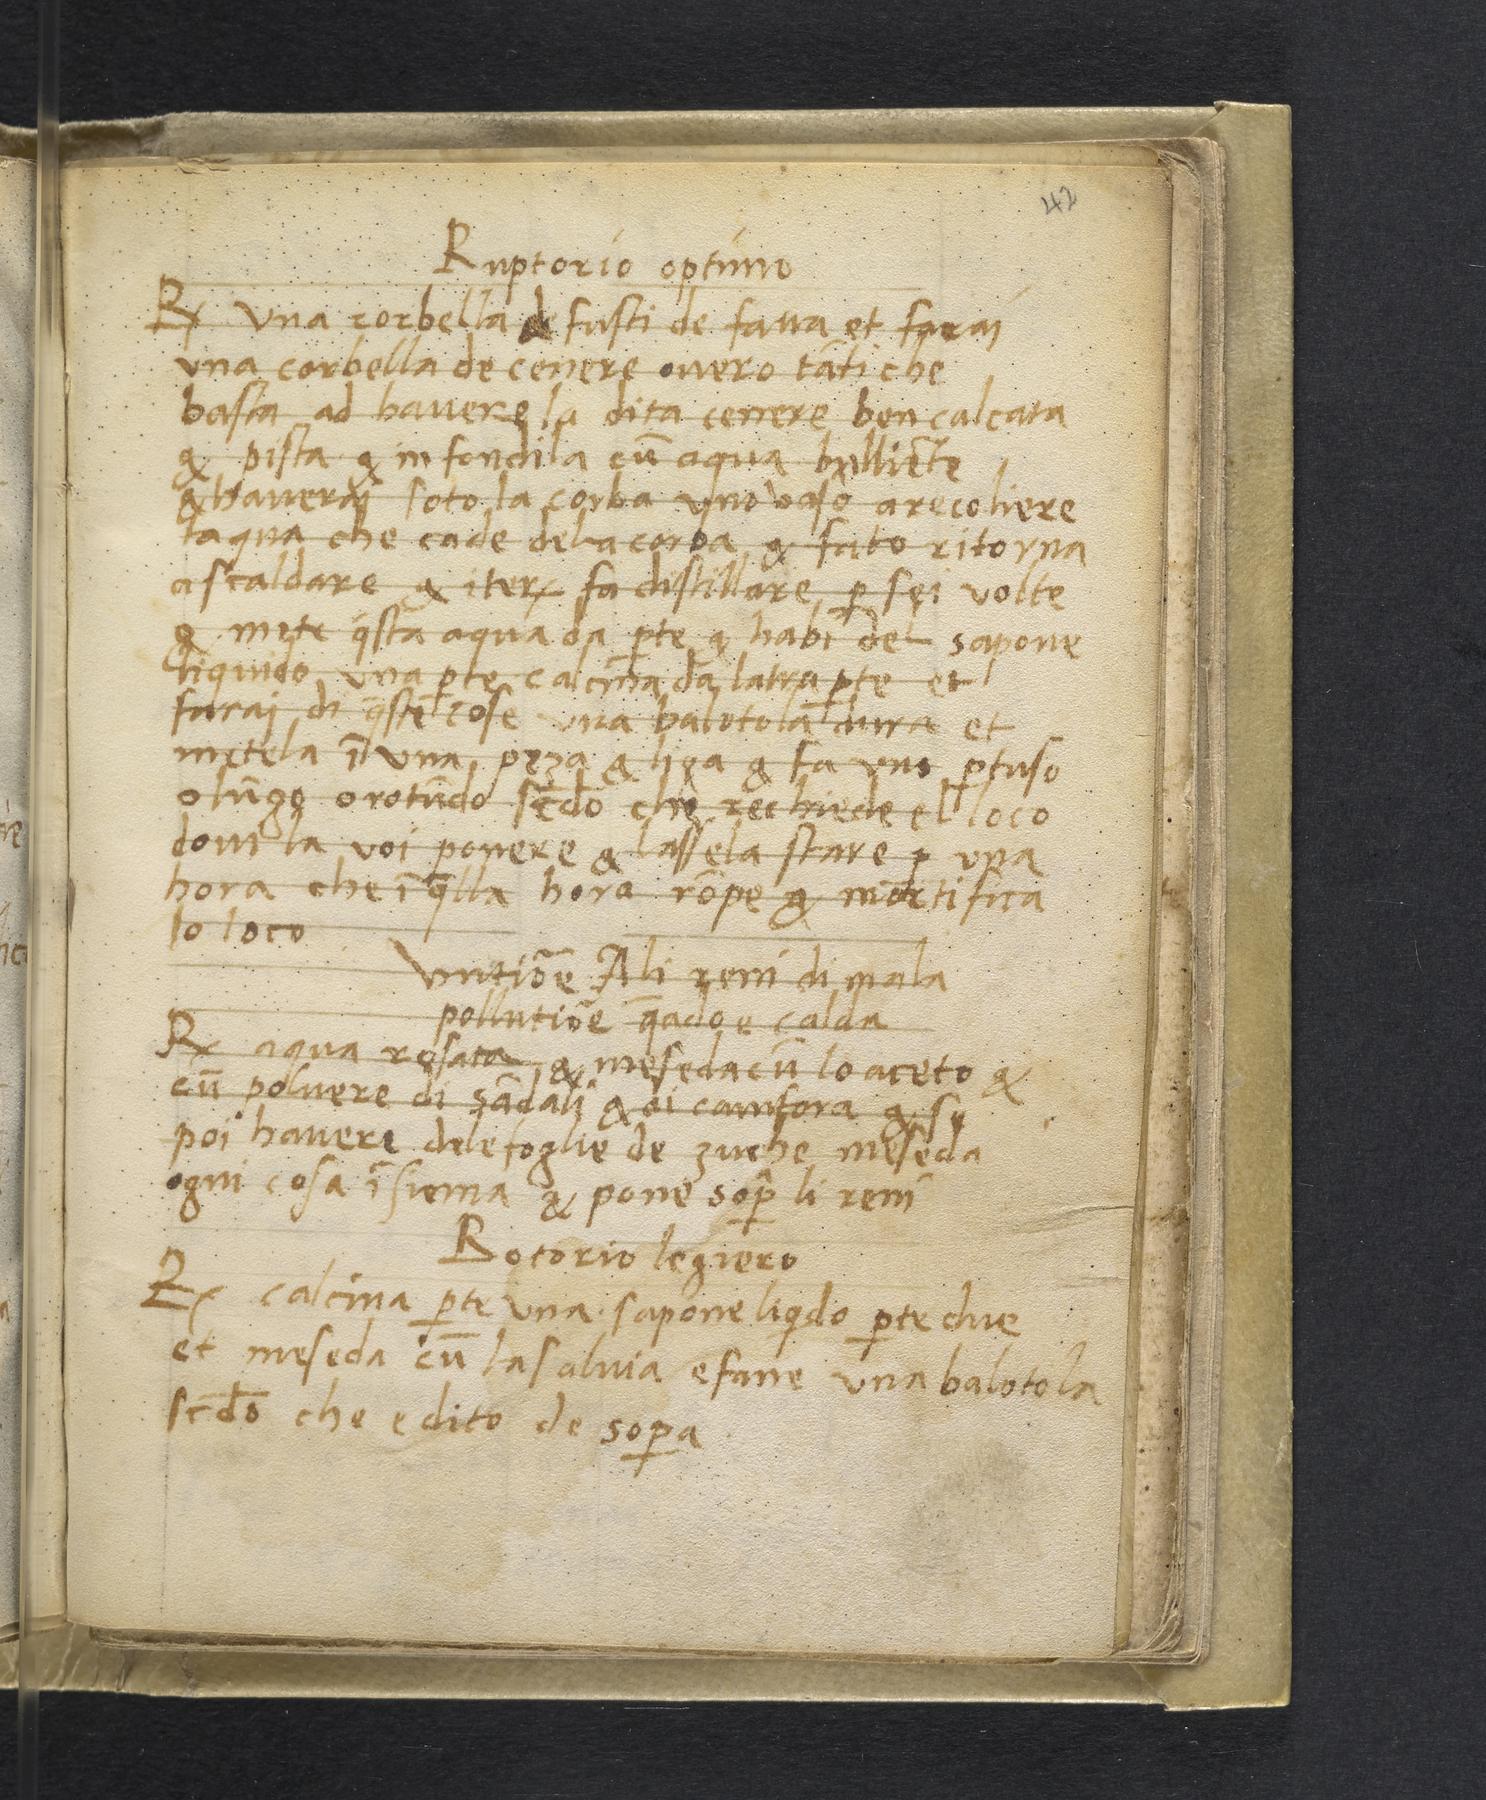 42
Ruptorio optimo
℞ Una corbella de fusti de faua et faraj
una corbella de cenere ouero tãti che
basta ad hauere la dita cenere ben calcata
& pista & infondila cũ aqua bulliẽte
& hauerai soto la corba uno uaso arecoliere
laqua che cade dela corba & fato ritorna
ascaldare & iterꝝ fa distillare ꝑ sei uolte
& mete q̃sta aqua da ꝑte & habi del sapone
liquido una ꝑte calcina da latra ꝑte et
faraj di q̃ste cose una balotola dura et
metela ĩ una peza & liga & fa uno ꝑtuso
olũgo orotũdo scdõ che rechiede el loco
doui la uoi ponere & lassela stare ꝑ una
hora che ĩ q̃lla hora rõpe & mortifica
lo loco
Untiõe Ali reni di mala
pollutiõe q̃ado e calda
℞ aqua rosata & meseda cũ lo aceto &
cũ poluere di sãdali & di camfora & se
poi hauere dele foglie de zuche meseda
ogni cosa ĩsiema & pone sop̃ li reni
Rotorio legiero
℞ calcina ꝑte una sapone liqdo ꝑte due
et meseda cũ la saluia e fane una balotola
scdõ che e dito de soꝑa